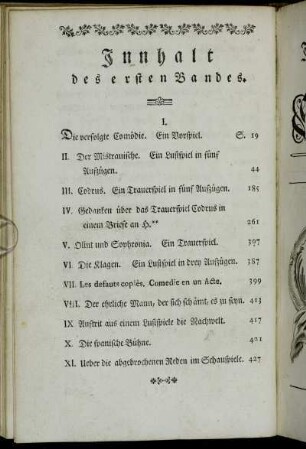 Innhalt
des ersten Bandes.
I.
Die verfolgte Comödie. Ein Vorspiel. S. 19
II. Der Mistrauische. Ein Lustspiel in fünf
Aufzügen. 44
III. Codrus. Ein Trauerspiel in fünf Aufzügen. 185
IV. Gedanken über das Trauerspiel Codrus in
einem Briefe an H.** 261
V. Olint und Sophronia. Ein Trauerspiel. 397
VI. Die Klagen. Ein Lustspiel in drey Aufzügen. 387
VII. Les defauts copiés, Comedie en un Acte. 399
VIII. Der ehrliche Mann, der sich schämt, es zu seyn. 413
IX Auftrit aus einem Lustspiele die Nachwelt. 417
X. Die spanische Bühne. 421
XI. Ueber die abgebrochenen Reden im Schauspiele. 427